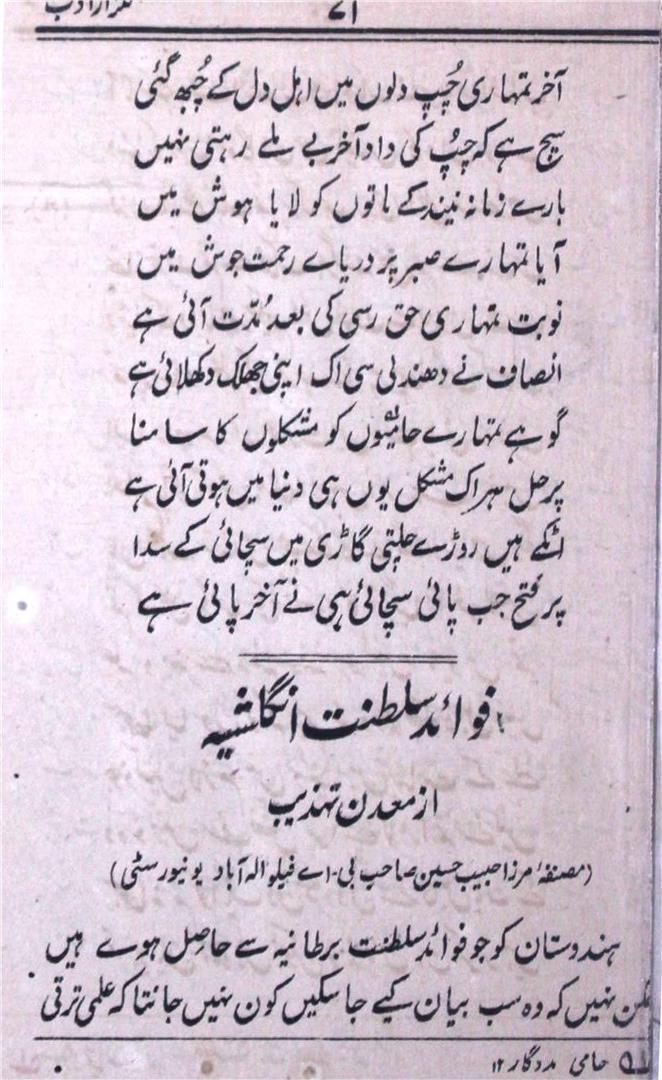 ۷۱
آخر تمہاری چُپ دلوں میں اہل دل کے چُبھ گئی
سچ ہے کہ چُپ کی داد آخر بے ملے رہتی نہیں
بارے زمانہ نیند کے ماتوں کو لایا ہوش میں
آیا تمہارے صبر پر دریاے رحمت جوش میں
نوبت تمہاری حق رسی کی بعد مُدّت آئی ہے
انصاف نے دھندلی سی اک اپنی جھلک دکھلائی ہے
گو ہے تمہارے حامیوں کو مشکلوں کا سامنا
پر حل ہر اک مشکل یوں ہی دنیا میں ہوتی آئی ہے
اٹکے ہیں روڑے چلتی گاڑی میں سچائی کے سدا
پر فتح جب پائی سچائی ہی نے آخر پائی ہے
فوائد سلطنت انگلشیہ
از معدن تہذیب
(مصنفۂ مرزا حبیب حسین صاحب بی۔اے فیلو الہ آباد یونیورسٹی)
ہندوستان کو جو فوائد سلطنت برطانیہ سے حاصل ہوے ہیں
نہیں کہ وہ سب بیان کیے جا سکیں کون نہیں جانتا کہ علمی ترقی
حامی مددگار ۱۲